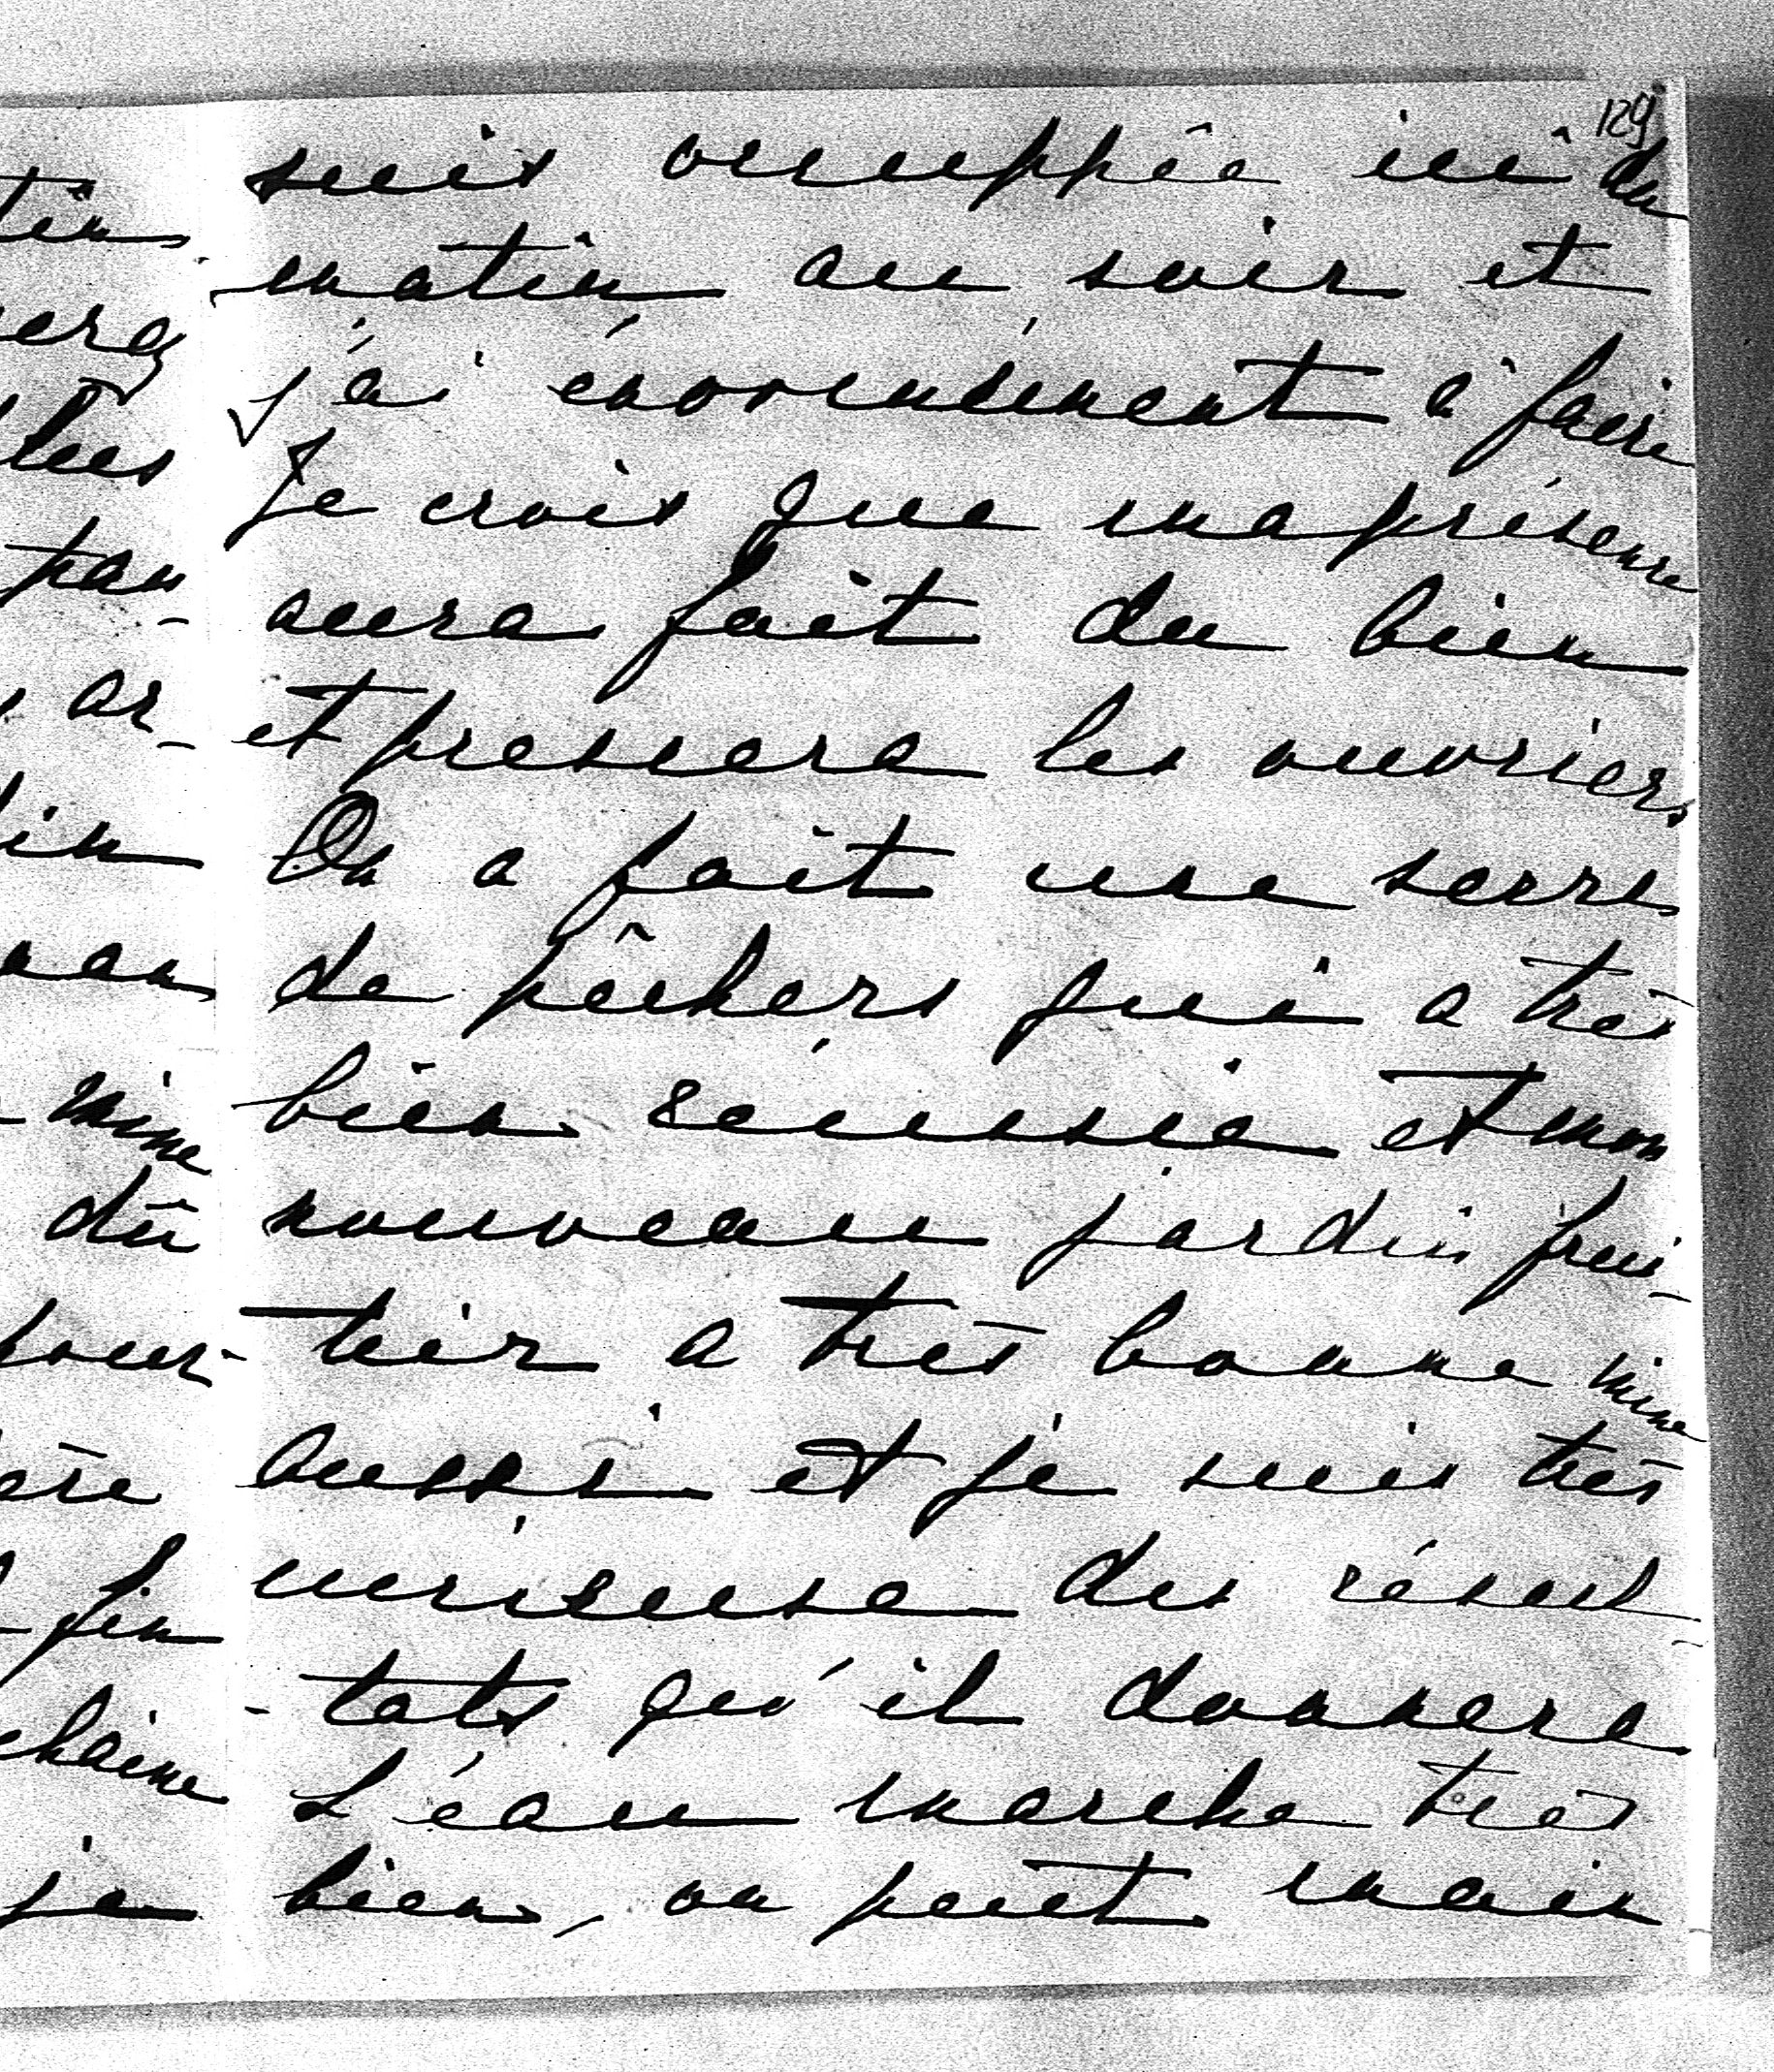 129
suis occupée ici du
matin au soir et
j'ai énormément à faire
Je crois que ma présence
aura fait du bien
et pressera les ouvriers.
On a fait une serre
de pêchers qui a très
bien réussie et mon
nouveau jardin frui-
tier a très bonne mine
aussi et je suis très
curieuse des résul-
-tats qu'il donnera
L'eau marche très
bien, on peut main
tin
lées
ar-
mine
dû
pour-
fin
chaine
je